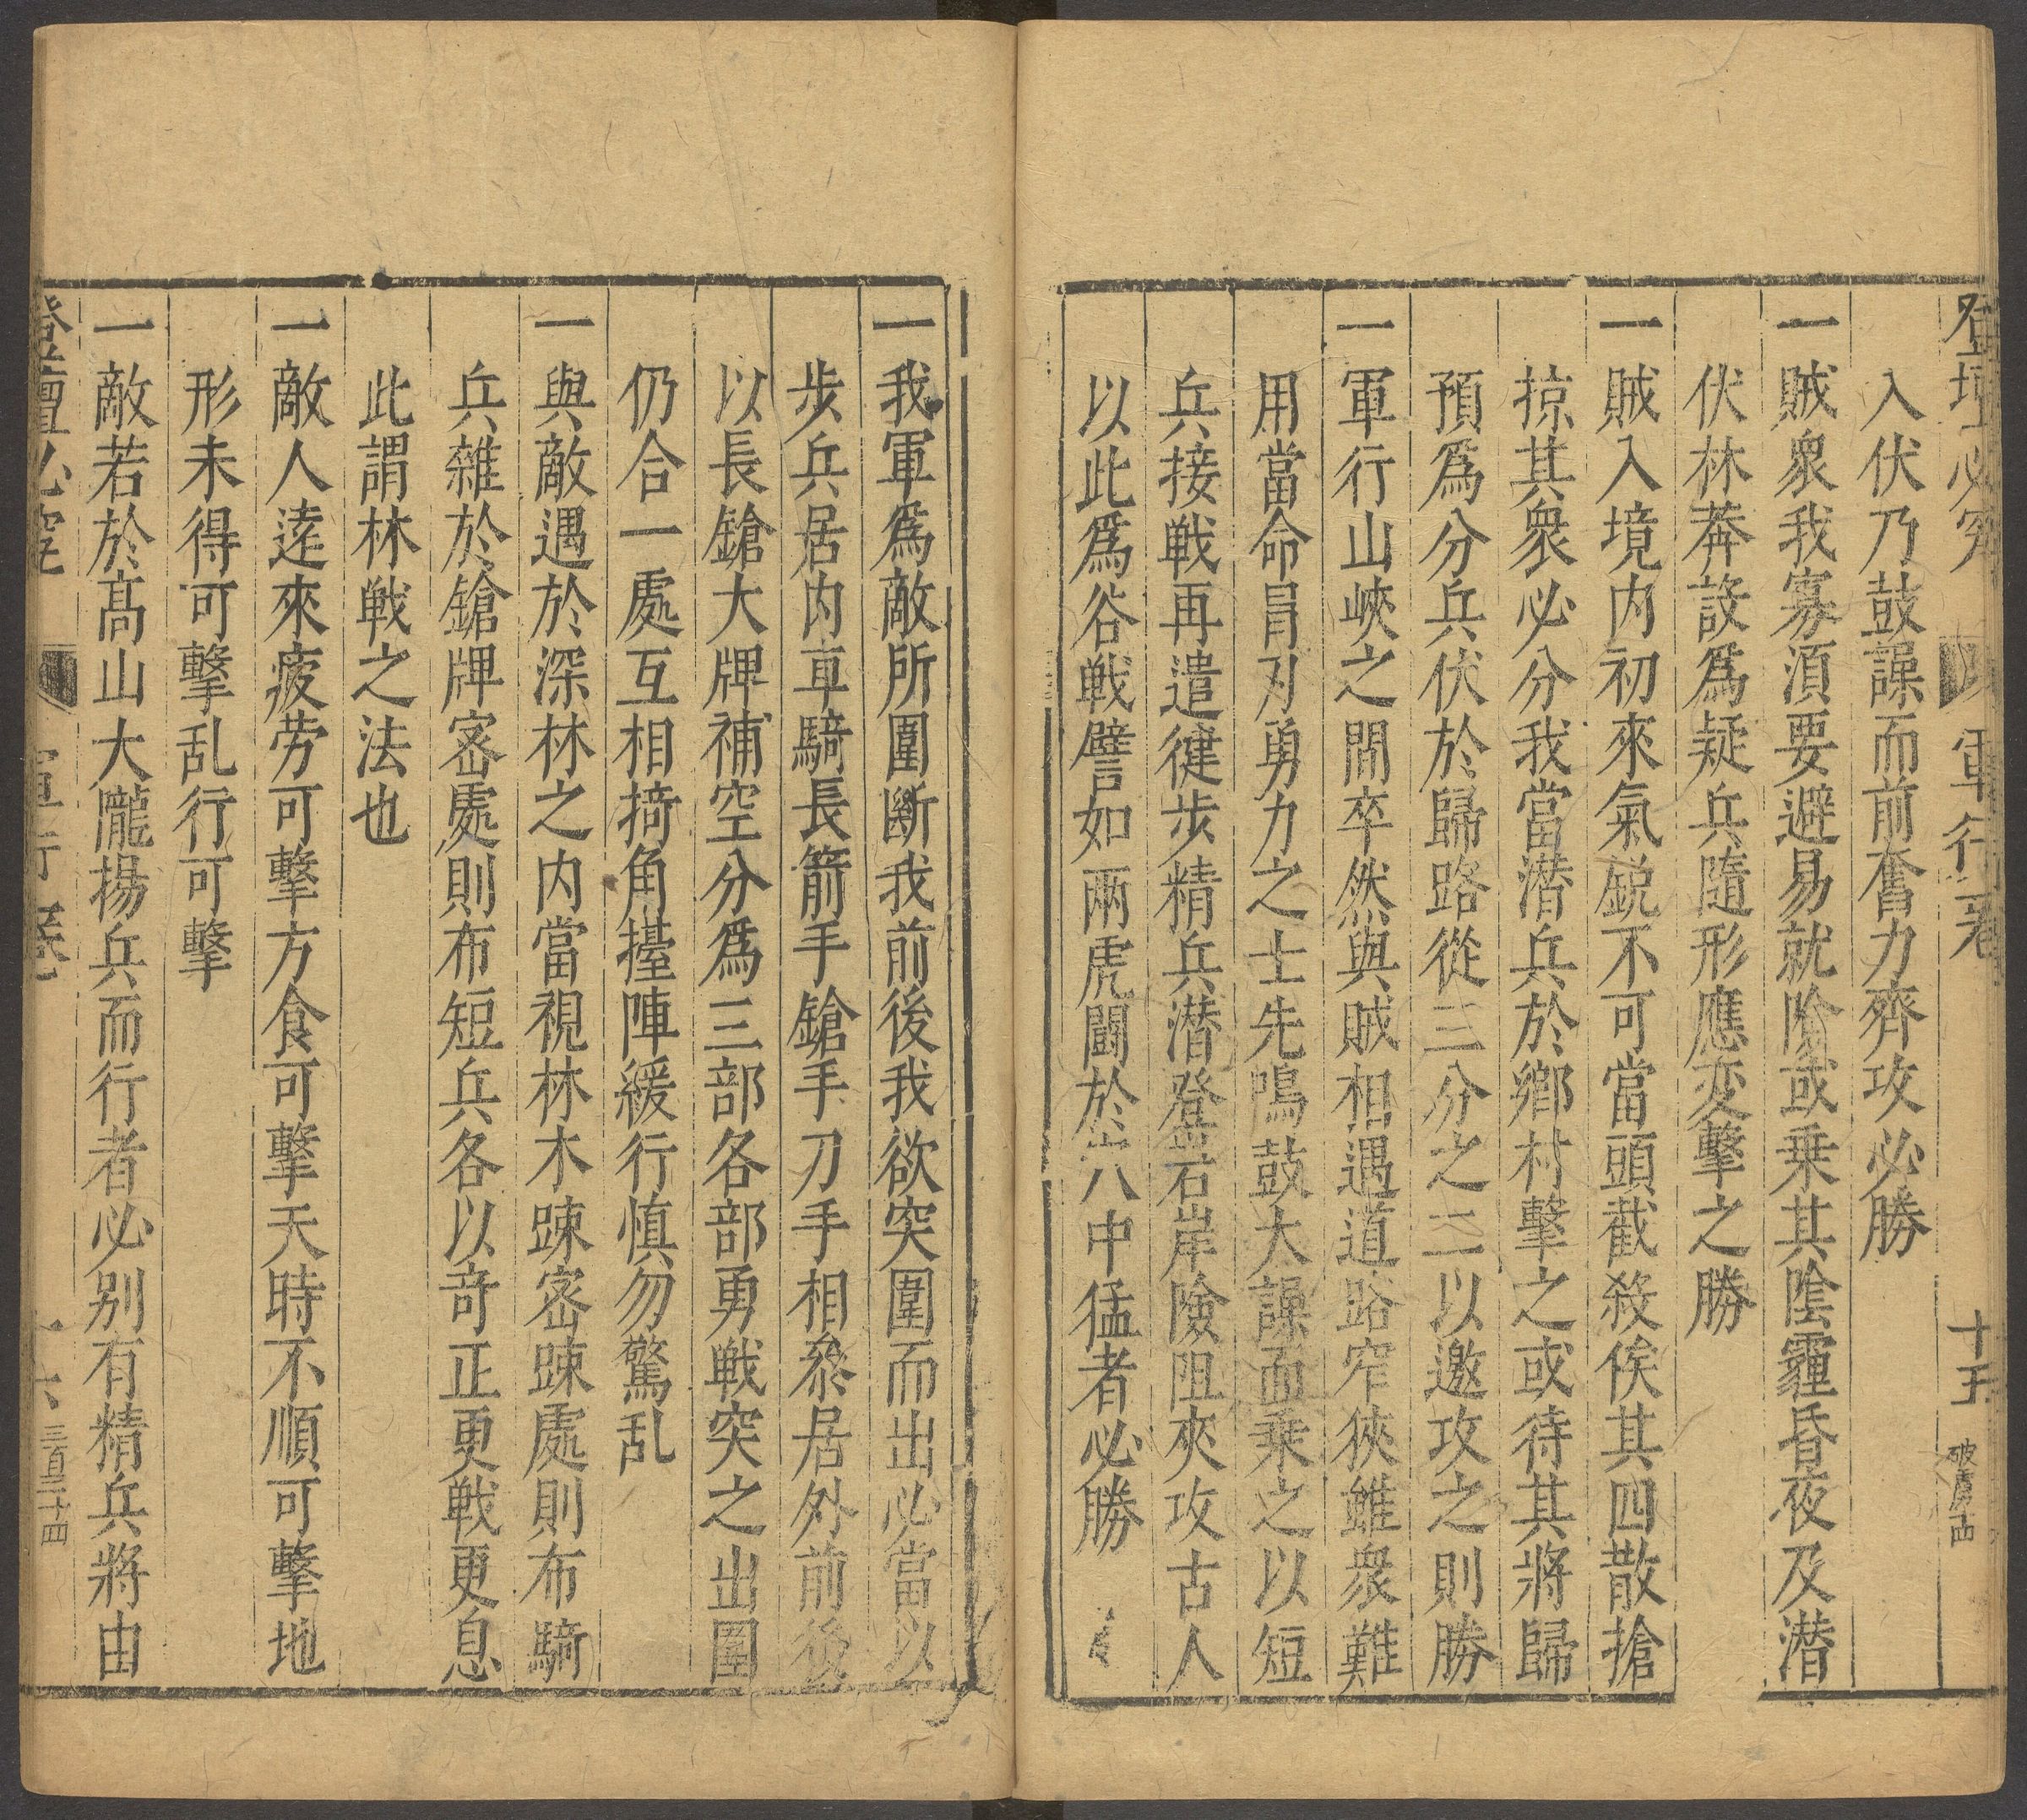 登壇必究 軍行 卷 十五
入伏乃鼓譟而前奮力齊攻必勝
一賊衆我寡湏要避易就險或乗其陰霾昏夜及潜
伏林莽設爲疑兵隨形應变擊之勝
一賊入境内初來氣鋭不可當頭截殺俟其四散搶
掠其衆必分我當潜兵於鄉村擊之或待其將歸
預爲分兵伏於歸路從三分之二以邀攻之則勝
一軍行山峽之間卒然與賊相遇道路窄狹雖衆難
用當命冐刃勇力之士先鳴鼓大譟而乗之以短
兵接戦再遣健步精兵潜登岩岸險阻夾攻古人
以此爲谷戦譬如兩虎闘於穴中猛者必勝
一我軍爲敵所圍斷我前後我欲突圍而出必當以
步兵居内車騎長箭手鎗手刀手相叅居外前後
以長鎗大牌補空分爲三部各部勇戦突之出圍
仍合一處互相掎角擡陣緩行慎勿驚乱
一與敵遇於深林之内當視林木踈宻踈處則布騎
兵雜於鎗牌宻處則布短兵各以竒正更戦更息
此謂林戦之法也
一敵人逺來疲労可擊方食可擊天時不順可擊地
形未得可擊乱行可擊
一敵若於髙山大隴揚兵而行者必别有精兵將由
登壇必究 軍行 卷 十六 三百二十四